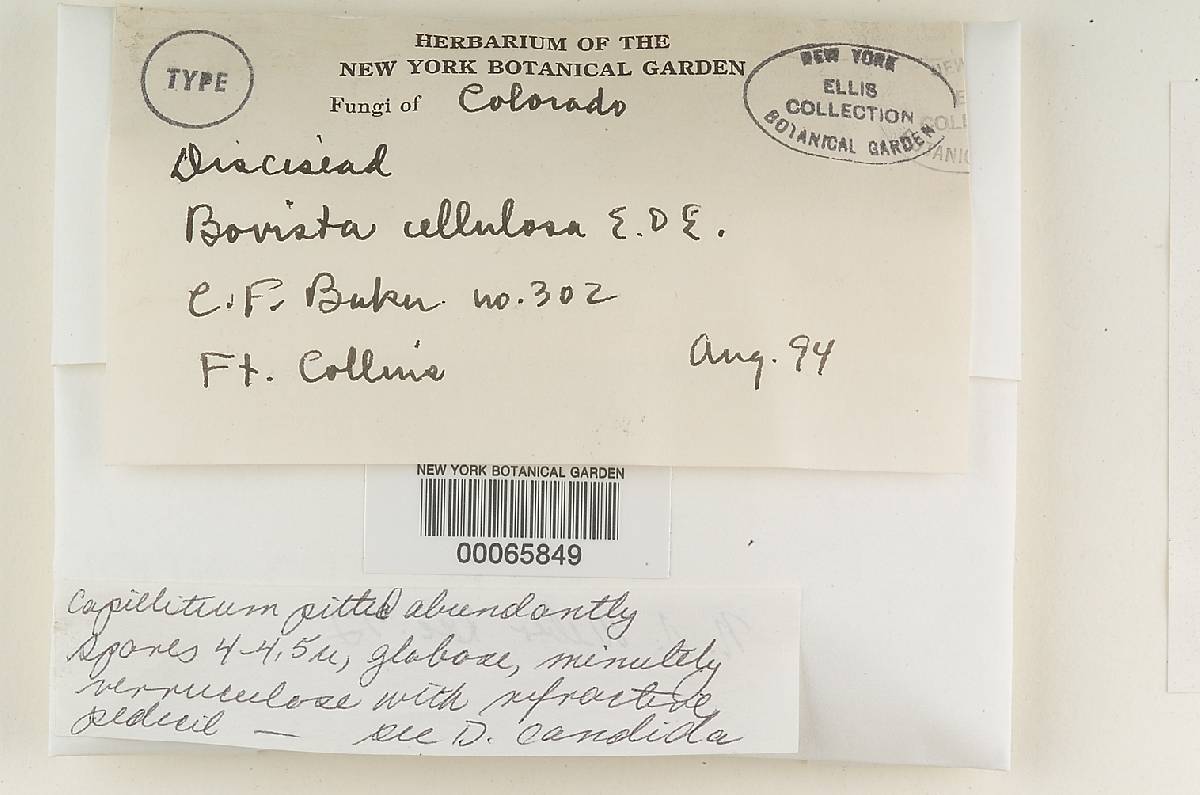 TYPE
HERBARIUM OF THE
NEW YORK BOTANICAL GARDEN
Fungi of Colorado
NEW YORK
ELLIS
COLLECTION
BOTANICAL GARDEN
Bovista cellulosa E. & E.
C. F. Baker. no. 302
Ft. Collins Aug. 94
NEW YORK BOTANICAL GARDEN
00065849
Capillitium pitted abundantly
spores 4-4.5u, globose, minutely
verruculose with refractive
pedicil — see D. candida